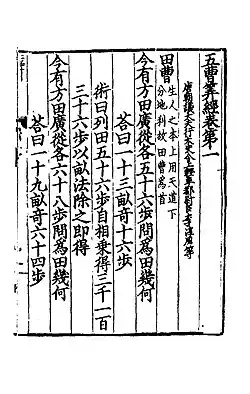 五曹筭經卷第一
唐朝議大夫行太史令上輕車都尉臣李淳風等
田曹
生人之本上用天道下
分地利故田曹為首
今有方田廣從各五十六步問為田幾何
荅曰一十三畝奇一十六步
術曰列田五十六步自相乘得三千一百
三十六步以畝法除之即得
今有方田廣從各六十八步問為田幾何
荅曰一十九畝奇六十四步